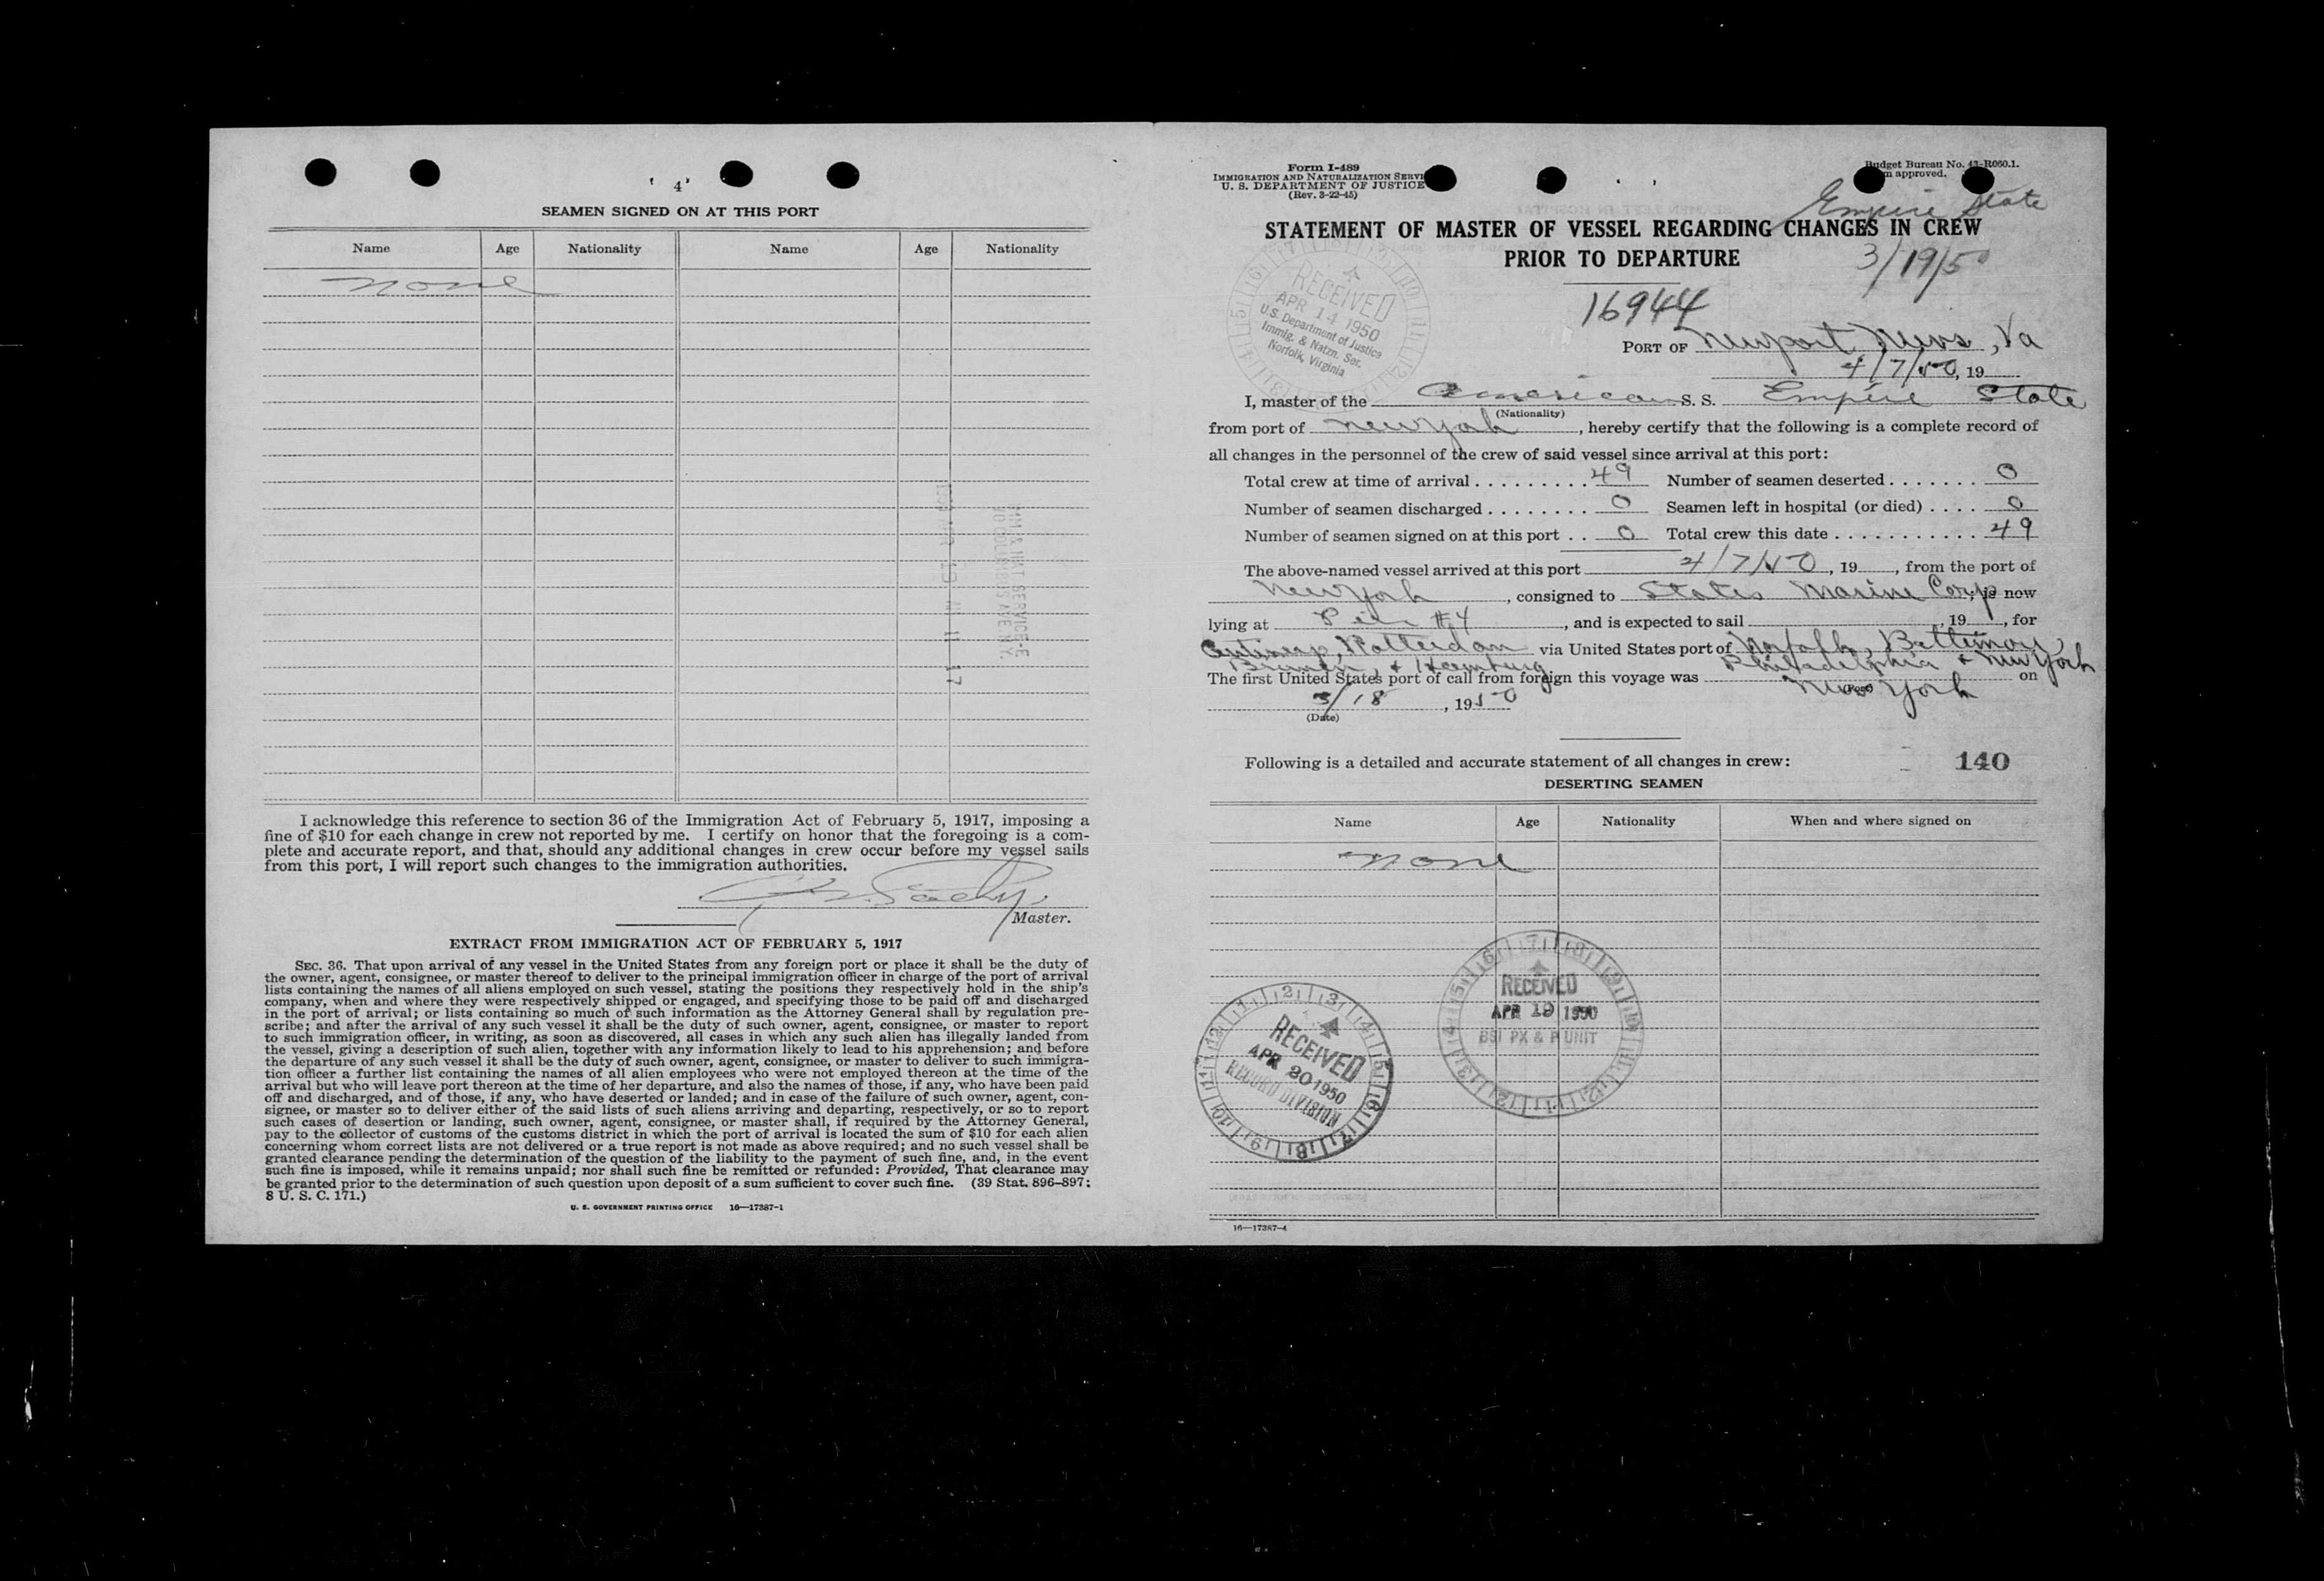 4
SEAMEN SIGNED ON AT THIS PORT
Name Age Nationality Name Age Nationality
none
I acknowledge this reference to section 36 of the Immigration Act of February 5, 1917, imposing a
fine of $10 for each change in crew not reported by me. I certify on honor that the foregoing is a com-
plete and accurate report, and that, should any additional changes in crew occur before my vessel sails
from this port, I will report such changes to the immigration authorities.
Master.
EXTRACT FROM IMMIGRATION ACT OF FEBRUARY 5, 1917
SEC. 36. That upon arrival of any vessel in the United States from any foreign port or place it shall be the duty of
the owner, agent, consignee, or master thereof to deliver to the principal immigration officer in charge of the port of arrival
lists containing the names of all aliens employed on such vessel, stating the positions they respectively hold in the ship's
company, when and where they were respectively shipped or engaged, and specifying those to be paid off and discharged
in the port of arrival; or lists containing so much of such information as the Attorney General shall by regulation pre-
scribe; and after the arrival of any such vessel it shall be the duty of such owner, agent, consignee, or master to report
to such immigration officer, in writing, as soon as discovered, all cases in which any such alien has illegally landed from
the vessel, giving a description of such alien, together with any information likely to lead to his apprehension; and before
the departure of any such vessel it shall be the duty of such owner, agent, consignee, or master to deliver to such immigra-
tion officer a further list containing the names of all alien employees who were not employed thereon at the time of the
arrival but who will leave port thereon at the time of her departure, and also the names of those, if any, who have been paid
off and discharged, and of those, if any, who have deserted or landed; and in case of the failure of such owner, agent, con-
signee, or master so to deliver either of the said lists of such aliens arriving and departing, respectively, or so to report
such cases of desertion or landing, such owner, agent, consignee, or master shall, if required by the Attorney General,
pay to the collector of customs of the customs district in which the port of arrival is located the sum of $10 for each alien
concerning whom correct lists are not delivered or a true report is not made as above required; and no such vessel shall be
granted clearance pending the determination of the question of the liability to the payment of such fine, and, in the event
such fine is imposed, while it remains unpaid; nor shall such fine be remitted or refunded: Provided, That clearance may
be granted prior to the determination of such question upon deposit of a sum sufficient to cover such fine. (39 Stat. 896–897;
8 U. S. C. 171.)
U. S. GOVERNMENT PRINTING OFFICE 16—17387-1
Form I-489
IMMIGRATION AND NATURALIZATION SERVI
U. S. DEPARTMENT OF JUSTICE
(Rev. 3-22-45)
Budget Bureau No. 43-R060.1.
approved.
Empire State
STATEMENT OF MASTER OF VESSEL REGARDING CHANGES IN CREW
PRIOR TO DEPARTURE
3/19/50
RECEIVED
APR 14 1950
U.S. Department of Justice
Immig. & Natzn. Ser.
Norfolk, Virginia
16944
PORT OF Newport News, Va
4/7/50, 19
I, master of the American S. S. Empire State
(Nationality)
from port of New York, hereby certify that the following is a complete record of
all changes in the personnel of the crew of said vessel since arrival at this port:
Total crew at time of arrival 49 Number of seamen deserted 0
Number of seamen discharged 0 Seamen left in hospital (or died) 0
Number of seamen signed on at this port 0 Total crew this date 49
The above-named vessel arrived at this port 4/7/50, 19, from the port of
New York, consigned to States Marine Corp, is now
lying at Pier #4, and is expected to sail , 19, for
Antwerp, Rotterdam via United States port of Norfolk, Baltimore
Bremen, & Hamburg Philadelphia & New York
The first United States port of call from foreign this voyage was New York on
(Port)
3/18, 1950
(Date)
Following is a detailed and accurate statement of all changes in crew: 140
DESERTING SEAMEN
Name Age Nationality When and where signed on
none
RECEIVED
APR 19 1950
BSI PX & P UNIT
RECEIVED
APR 20 1950
RECORD DIVISION
16—17387-4